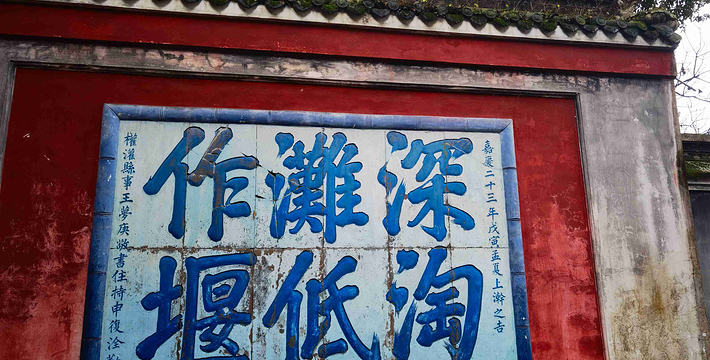 嘉慶二十三年戊寅孟夏上澣之吉
深淘
灘低
作堰
權灌縣事王夢庚敬書住持申復淦勒